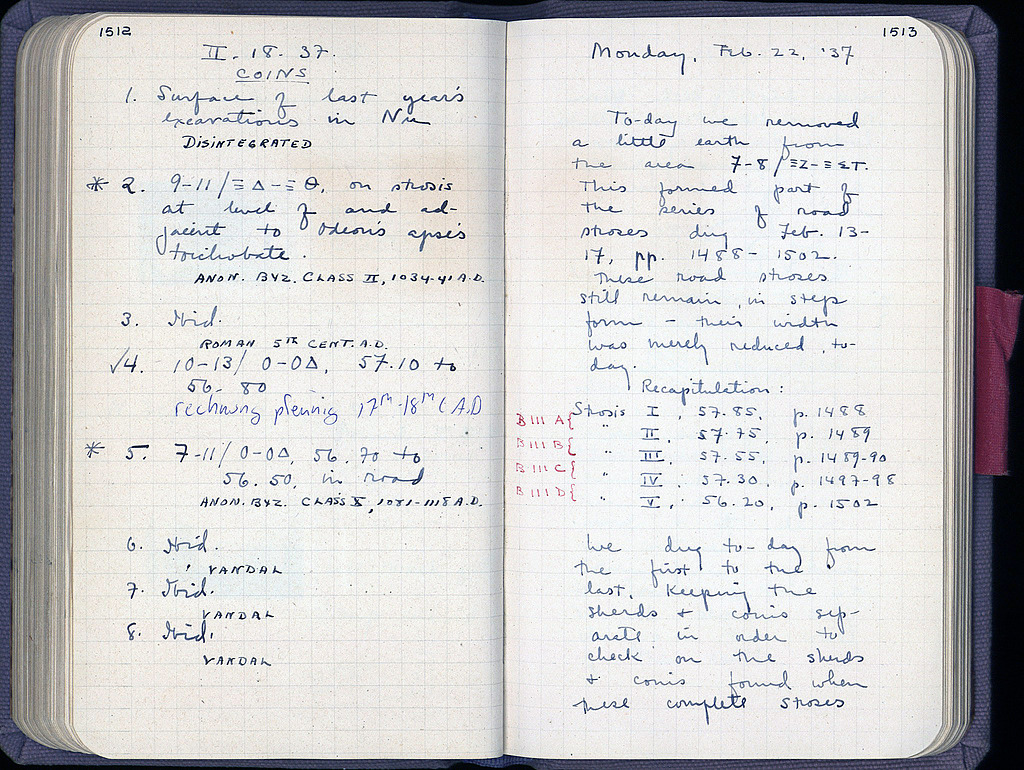 1512
II. 18. 37.
COINS
1. Surface of last year's
excavations in Nu
DISINTEGRATED
* 2. 9-11/ΞΔ-ΞΘ, on strosis
at level of and ad-
jacent to Odeon's apsis
toichobate.
ANON. BYZ. CLASS II, 1034-41 A.D.
3. Ibid.
ROMAN 5TH CENT. A.D.
√4. 10-13/ O-OΔ, 57.10 to
56.80
rechnung pfennig 17th-18th C A.D
* 5. 7-11/ O-OΔ, 56.70 to
56.50, in road
ANON. BYZ. CLASS X, 1081-1118 A.D.
6. Ibid.
VANDAL
7. Ibid.
VANDAL
8. Ibid.
VANDAL
1513
Monday, Feb. 22, '37
To-day we removed
a little earth from
the area 7-8/ΞZ-ΞΣT.
This formed part of
the series of road
stroses dug Feb. 13-
17, pp. 1488-1502.
These road stroses
still remain in steps
form – their width
was merely reduced to-
day.
Recapitulation:
B III A{ Strosis I, 57.85, p. 1488
B III B{ " II, 57.75, p. 1489
B III C{ " III, 57.55, p. 1489-90
B III D{ " IV, 57.30, p. 1497-98
" V, 56.20, p. 1502
We dug to-day from
the first to the
last, keeping the
sherds & coins sep-
arate in order to
check on the sherds
& coins found when
these complete stroses